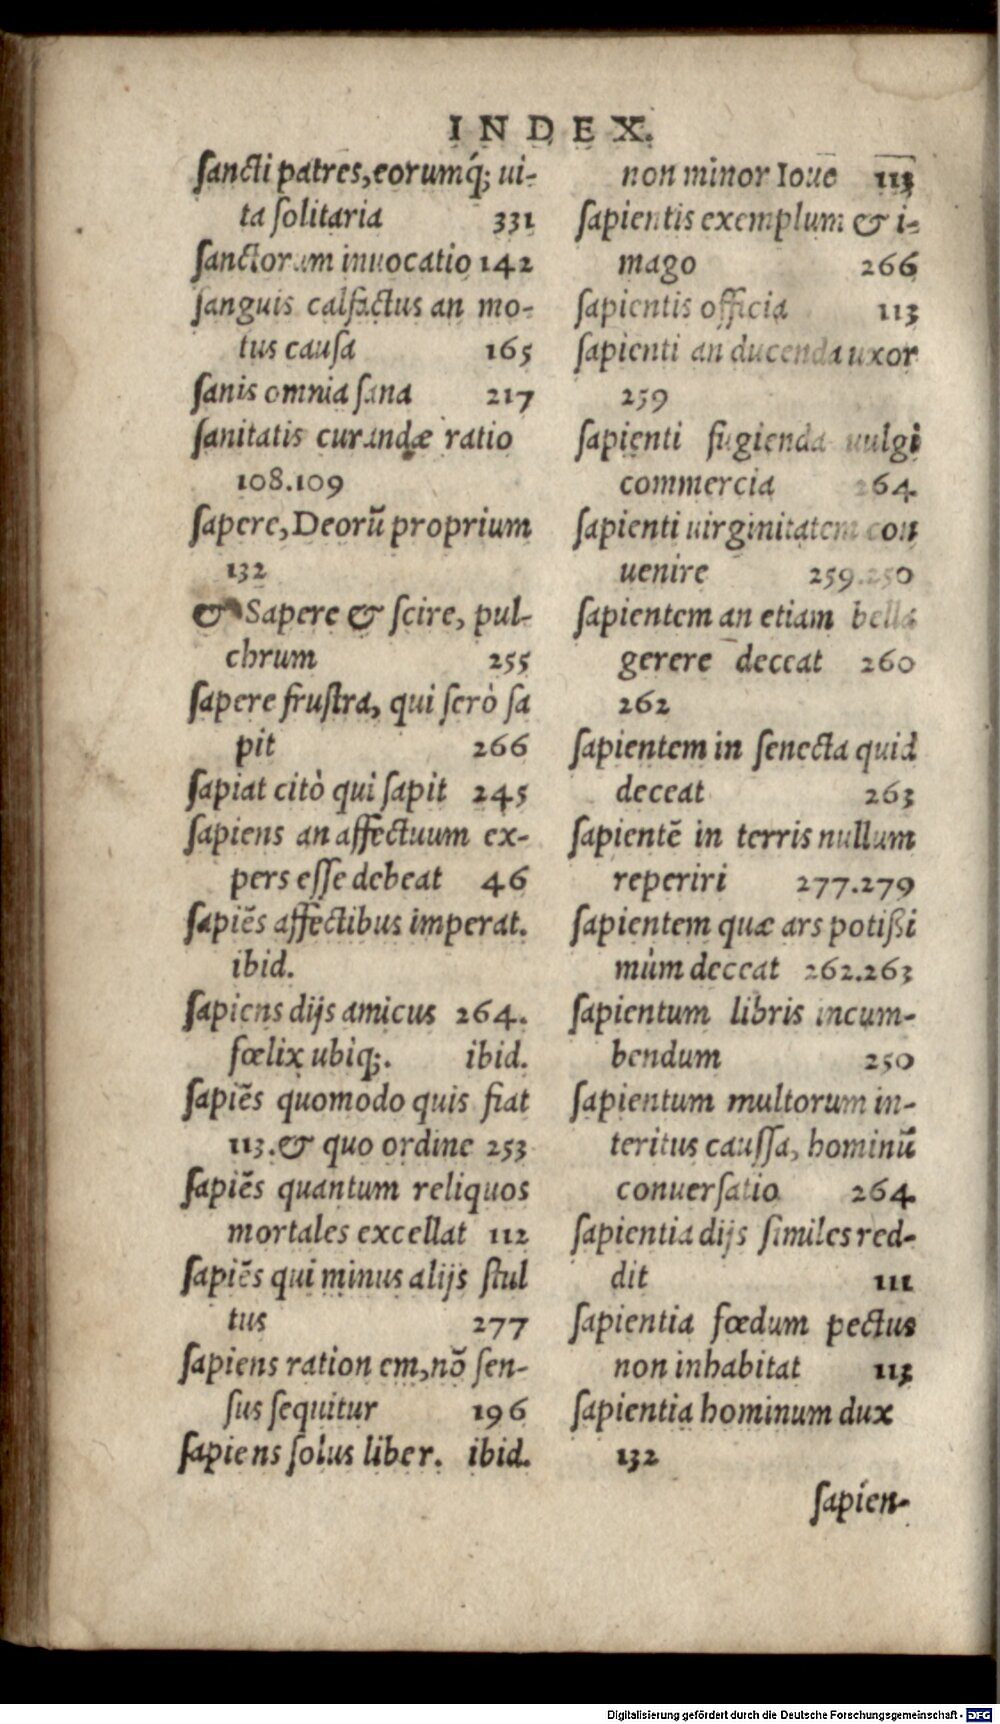 INDEX.
ſancti patres, eorumq́; ui-
ta ſolitaria 331
ſanctorum inuocatio 142
ſanguis calfactus an mo-
tus cauſa 165
ſanis omnia ſana 217
ſanitatis curandæ ratio
108.109
ſapere, Deorũ proprium
132
& Sapere & ſcire, pul-
chrum 255
ſapere fruſtra, qui ſerò ſa
pit 266
ſapiat citò qui ſapit 245
ſapiens an affectuum ex-
pers eſſe debeat 46
ſapiẽs affectibus imperat.
ibid.
ſapiens dijs amicus 264.
fœlix ubiq;. ibid.
ſapiẽs quomodo quis fiat
113. & quo ordine 253
ſapiẽs quantum reliquos
mortales excellat 112
ſapiẽs qui minus alijs ſtul
tus 277
ſapiens ration em, nõ ſen-
ſus ſequitur 196
ſapiens ſolus liber. ibid.
non minor Ioue 113
ſapientis exemplum & i-
mago 266
ſapientis officia 113
ſapienti an ducenda uxor
259
ſapienti fugienda uulgi
commercia 264
ſapienti uirginitatem con
uenire 259.250
ſapientem an etiam bella
gerere deceat 260
262
ſapientem in ſenecta quid
deceat 263
ſapientẽ in terris nullum
reperiri 277.279
ſapientem quæ ars potißi
mùm deceat 262.263
ſapientum libris incum-
bendum 250
ſapientum multorum in-
teritus cauſſa, hominũ
conuerſatio 264
ſapientia dijs ſimiles red-
dit 111
ſapientia fœdum pectus
non inhabitat 113
ſapientia hominum dux
132
ſapien-
Digitalisierung gefördert durch die Deutsche Forschungsgemeinschaft - DFG